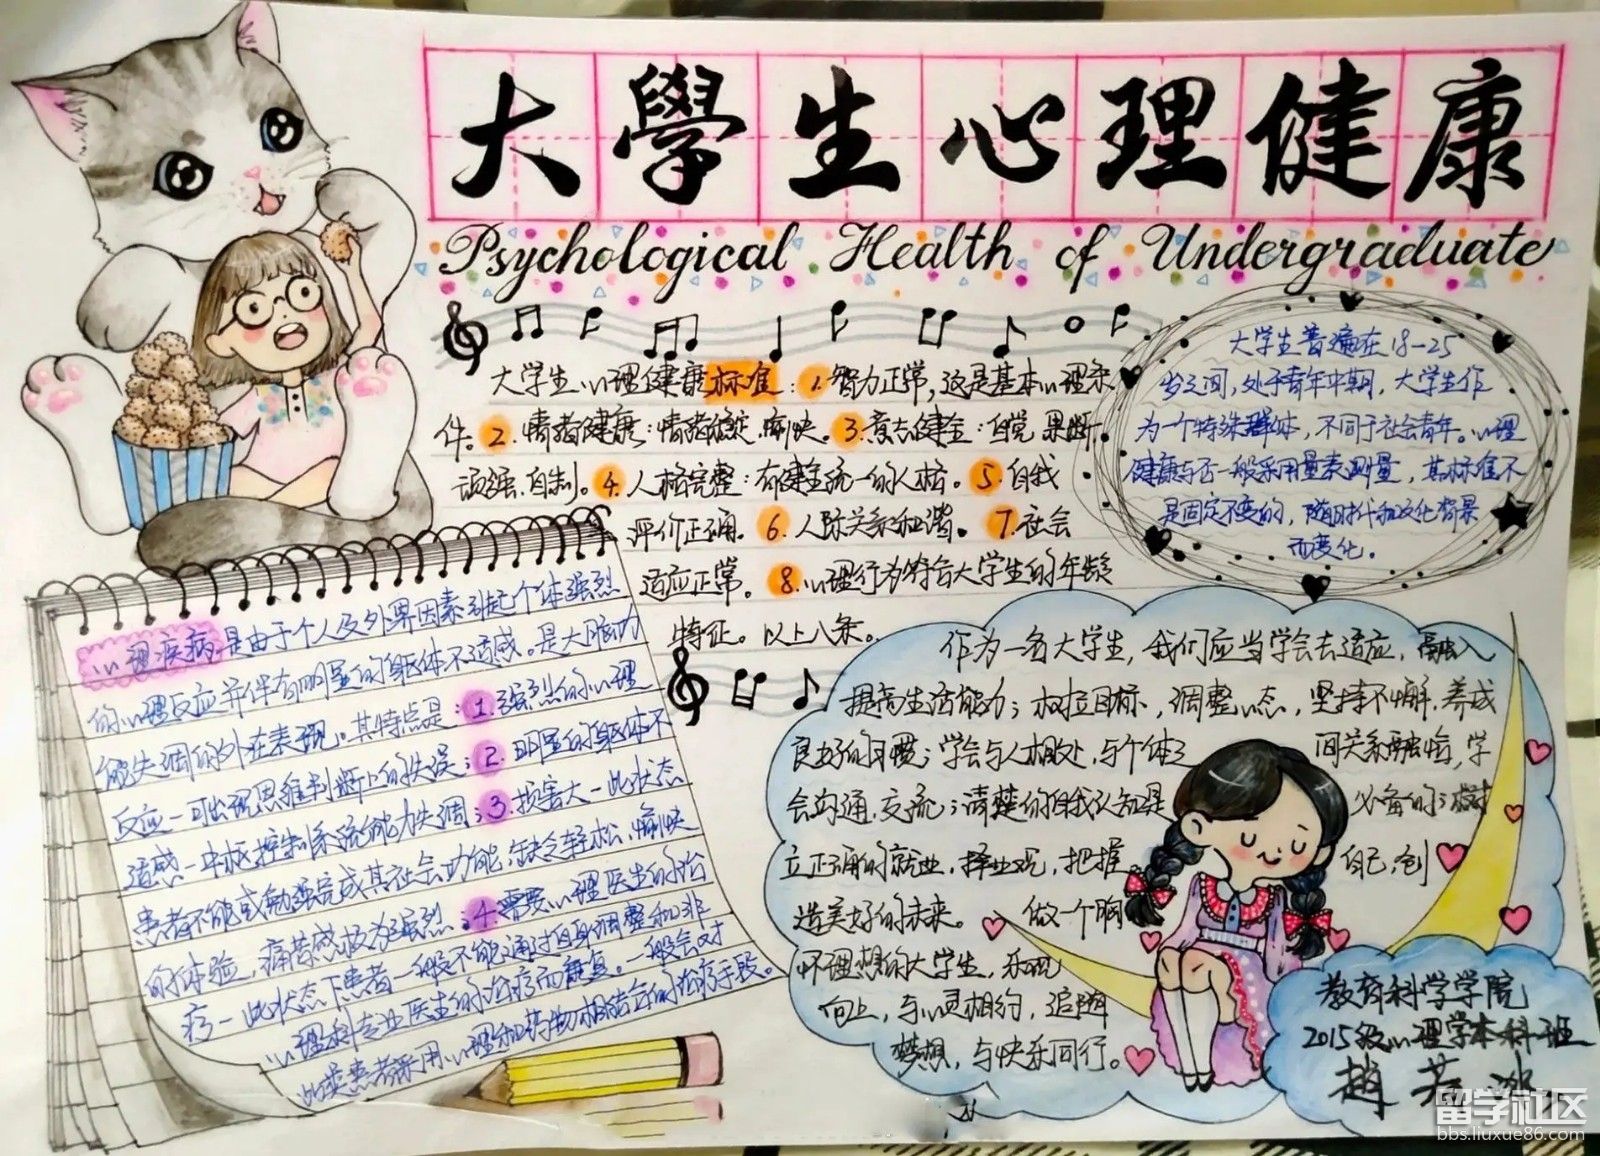 大學生心理健康
Psychological Health of Undergraduate
大学生心理健康标准：1.智力正常，这是基本心理条
件。2.情绪健康：情绪稳定，愉快。3.意志健全：自觉，果断，
顽强，自制。4.人格完整：有健全统一的人格。5.自我
评价正确。6.人际关系和谐。7.社会
适应正常。8.心理行为符合大学生的年龄
特征。以上八条。
大学生普遍在18-25
岁之间，处于青年中期，大学生作
为一个特殊群体，不同于社会青年。心理
健康与否一般采用量表测量，其标准不
是固定不变的，随时代和文化背景
而变化。
心理疾病是由于个人及外界因素引起个体强烈
的心理反应并伴有明显的躯体不适感。是大脑功
能失调的外在表现。其特点是：1.强烈的心理
反应—可出现思维判断上的失误；2.明显的躯体不
适感—中枢控制系统能力失调；3.损害大—此状态
患者不能或勉强完成其社会功能，缺乏轻松、愉快
的体验，痛苦感极为强烈；4.需要心理医生的治
疗—此状态下患者一般不能通过自身调整和非
心理科专业医生的治疗而康复。一般会对
此类患者采用心理和药物相结合的治疗手段。
作为一名大学生，我们应当学会去适应，融入
提高生活能力；树立目标，调整心态，坚持不懈，养成
良好的习惯；学会与人相处，与个体之间关系融恰，学
会沟通，交流；清楚的自我认知是必备的；树
立正确的就业，择业观，把握自己，创
造美好的未来。做一个胸
怀理想的大学生，乐观
向上，与心灵相约，追随
梦想，与快乐同行。
教育科学学院
2015级心理学本科班
趙若
留学社区
bbs.liuxue86.com